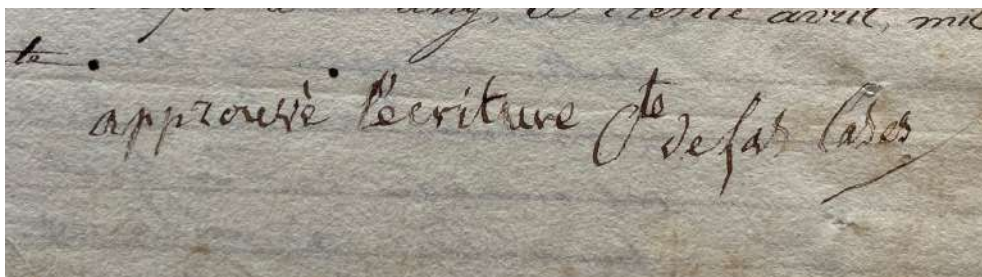 trente avril, mil
te.
approuvé l'écriture Cte de las Cases